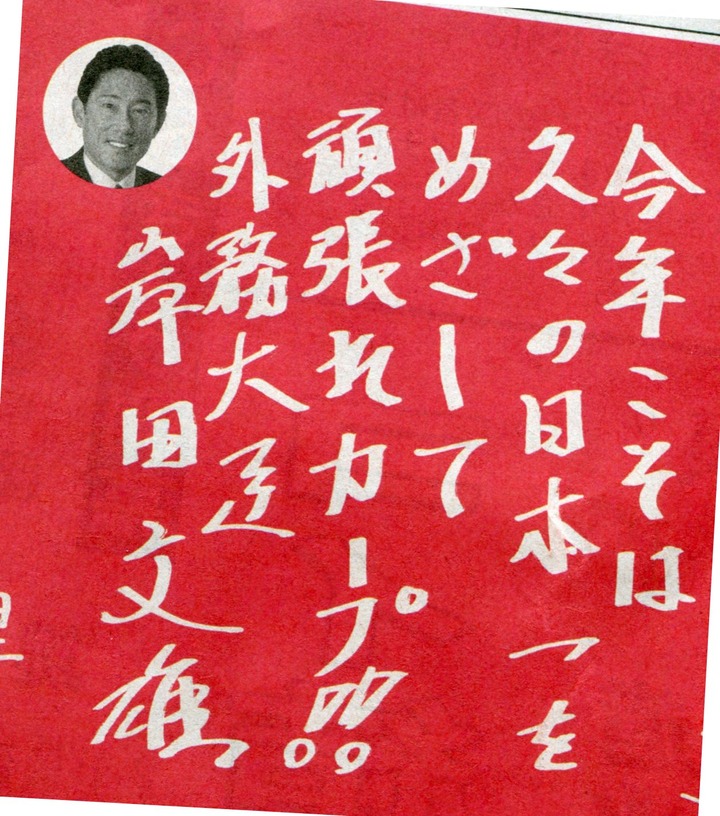 今年こそは
久々の日本一を
めざして
頑張れカープ!!!
外務大臣
岸田文雄